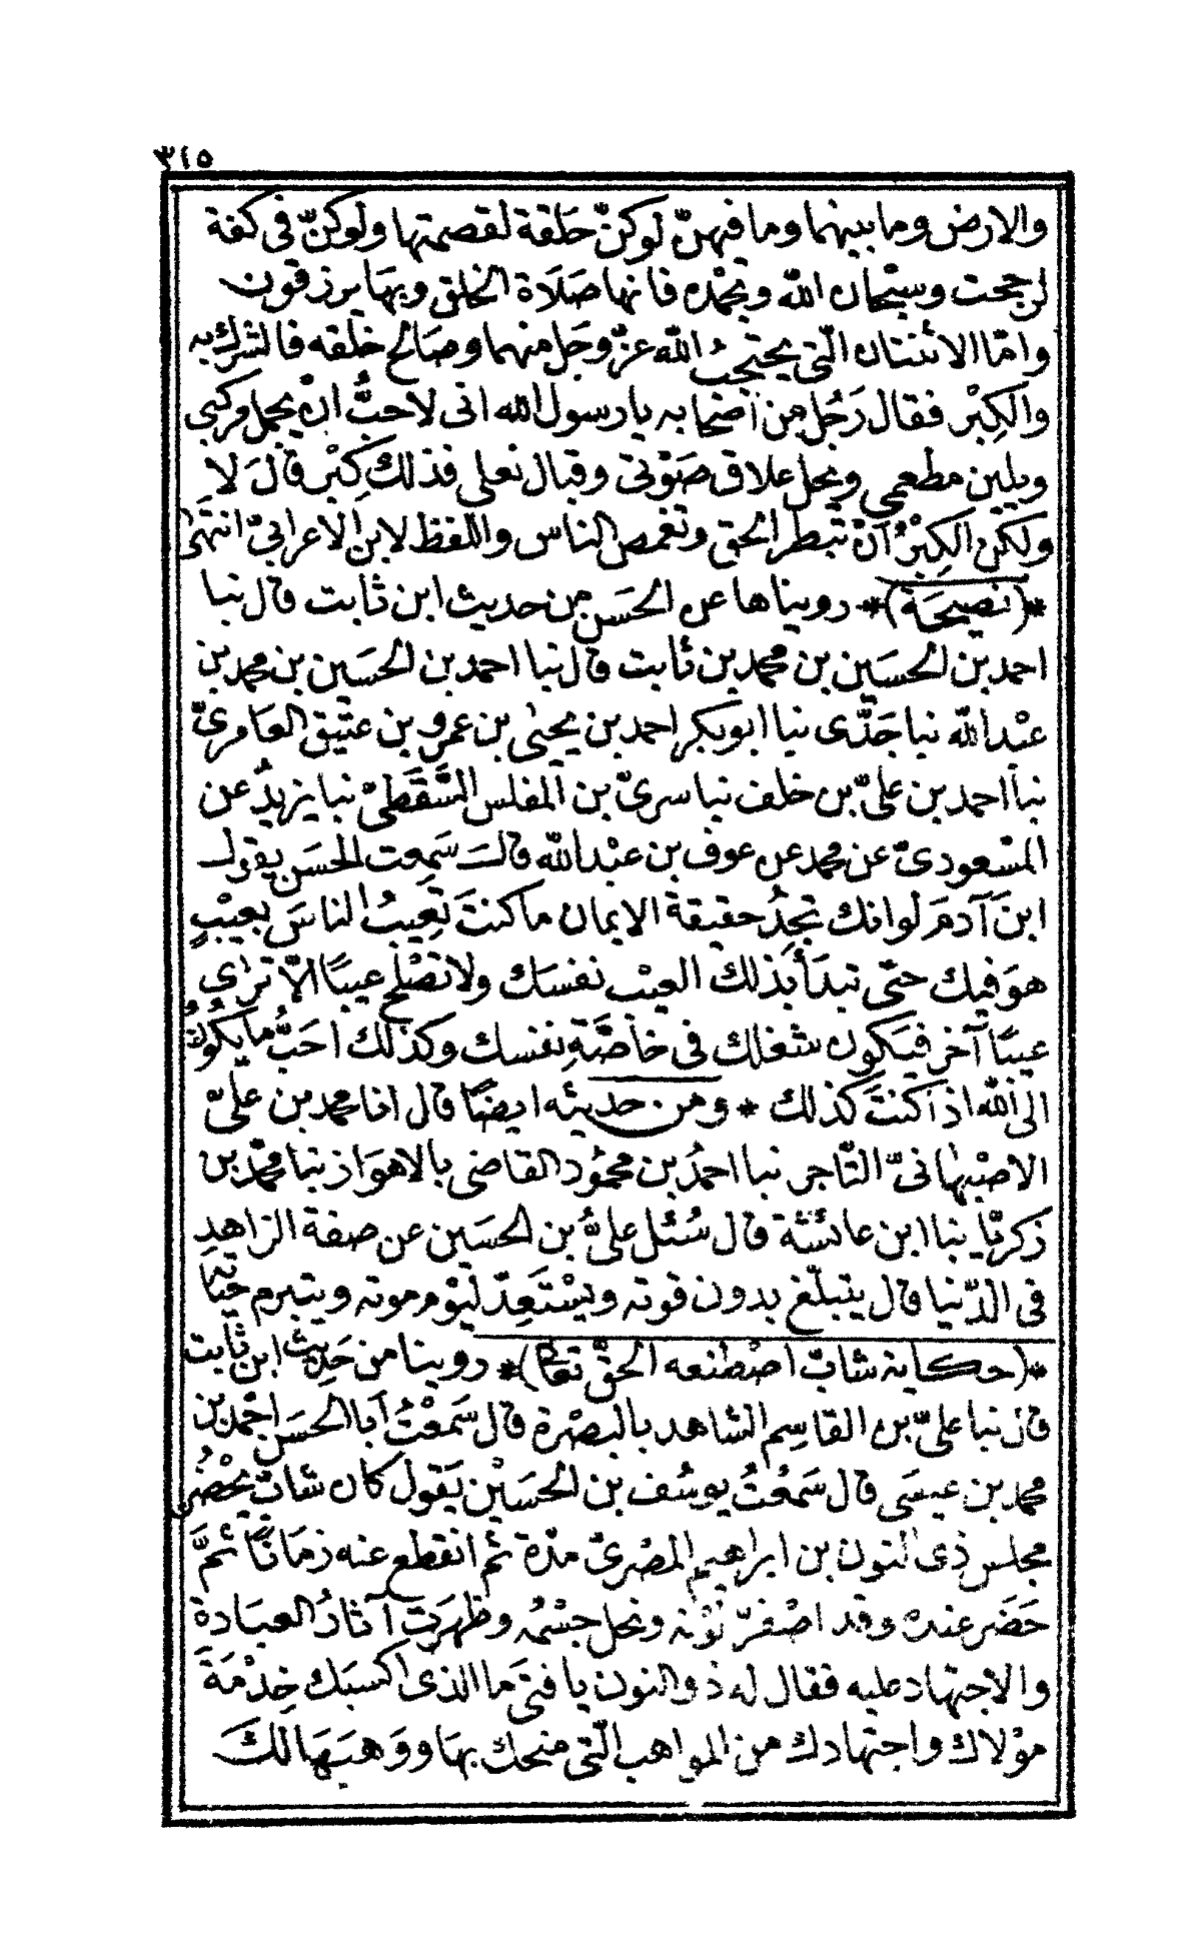 ٣٤٥
والارض وما بينهما وما فيهنّ لو كنّ حَلقة لقصمتها ولو كنّ فى كفة
لرجحت وسبْحان الله وبحمْده فانها صَلاة الخلق وبهَا يرزقون
وامّا الاثنتان الّتى يحتجبُ الله عزّ وجَل منهما وصَالح خلقه فالشرك به
والكِبْر فقال رَجُل من اصْحابه يا رسول الله انى لاحبُّ انْ يجمل مركبى
ويلين مطعمى ونحل علاق صَوْتى وقبال نعلى فذلك كِبْر قالَ لا
ولكن الكِبْرُ انْ تبطر الحق وتغمص الناس واللفظ لابن الاعرابىّ انتهَى
*(نصيحَة)* رويناها عن الحَسَن من حديث ابن ثابت قال نبا
احمد بن الحسَين بن محمد بن ثابت قال نبا احمد بن الحسَين بن محمد بن
عبْد الله نبا جَدّى نبا ابو بكر احمد بن يحيَى بن عمرو بن عتيق العَامرىّ
نبا احمد بن علىّ بن خلف نبا سرىّ بن المفلس السَّقَطىّ نبا يزيدُ عن
المسْعودىّ عن محمد عن عوف بن عبْد الله قالَ سَمِعت الحسَن يقول
ابنَ آدمَ لو انك تجدُ حقيقة الايمان ما كنتَ تَعِيبُ الناسَ بعيْبٍ
هوَ فيك حتّى تبدَأ بذلك العيْب نفسَك ولا تصْلح عيبًا الاّ ترَى
عيبًا آخر فيكون شغلك فى خاصَّةِ نفسك وكذلك احَبُّ ما يكُونُ
الى الله اذا كنتَ كذلك * ومن حديثه ايضًا قال انا محمد بن علىّ
الاصْبهانىّ التّاجر نبا احمدُ بن محمُود القاضى بالاهوَاز نبا محمّد بن
زكريّا نبا ابن عائشة قال سُئل علىُّ بن الحسَين عن صفة الزاهدِ
فى الدّنيا قال يتبلّغ بدون قوته ويسْتَعِدّ ليَوْم موته ويتبرم حيَاته
*(حكاية شابّ اصْطنعه الحقّ تعَالى)* روينا من حَديث ابن ثابت
قال نبا علىّ بن القاسِم الشاهد بالبصْرة قال سَمعْتُ اَبا الحسَن احْمد بن
محمد بن عيسَى قال سَمعْتُ يوسُف بن الحسَيْن يَقول كان شابّ يحْضُر
مجلس ذى النون بن ابراهيم المصْرىّ مدّة ثم انقطع عنه زمَانًا ثمَّ
حَضَر عندهْ وقد اصْفرّ لوْنه ونحل جسْمُه وظهرَت آثارُ العبَادة
والاجتهاد عليه فقال له ذو النون يا فتَى ما الذى اكسبَك خِدْمَةَ
موْلاك واجتهادك من المواهب الّتى منحك بهَا ووَهبَهَا لكَ